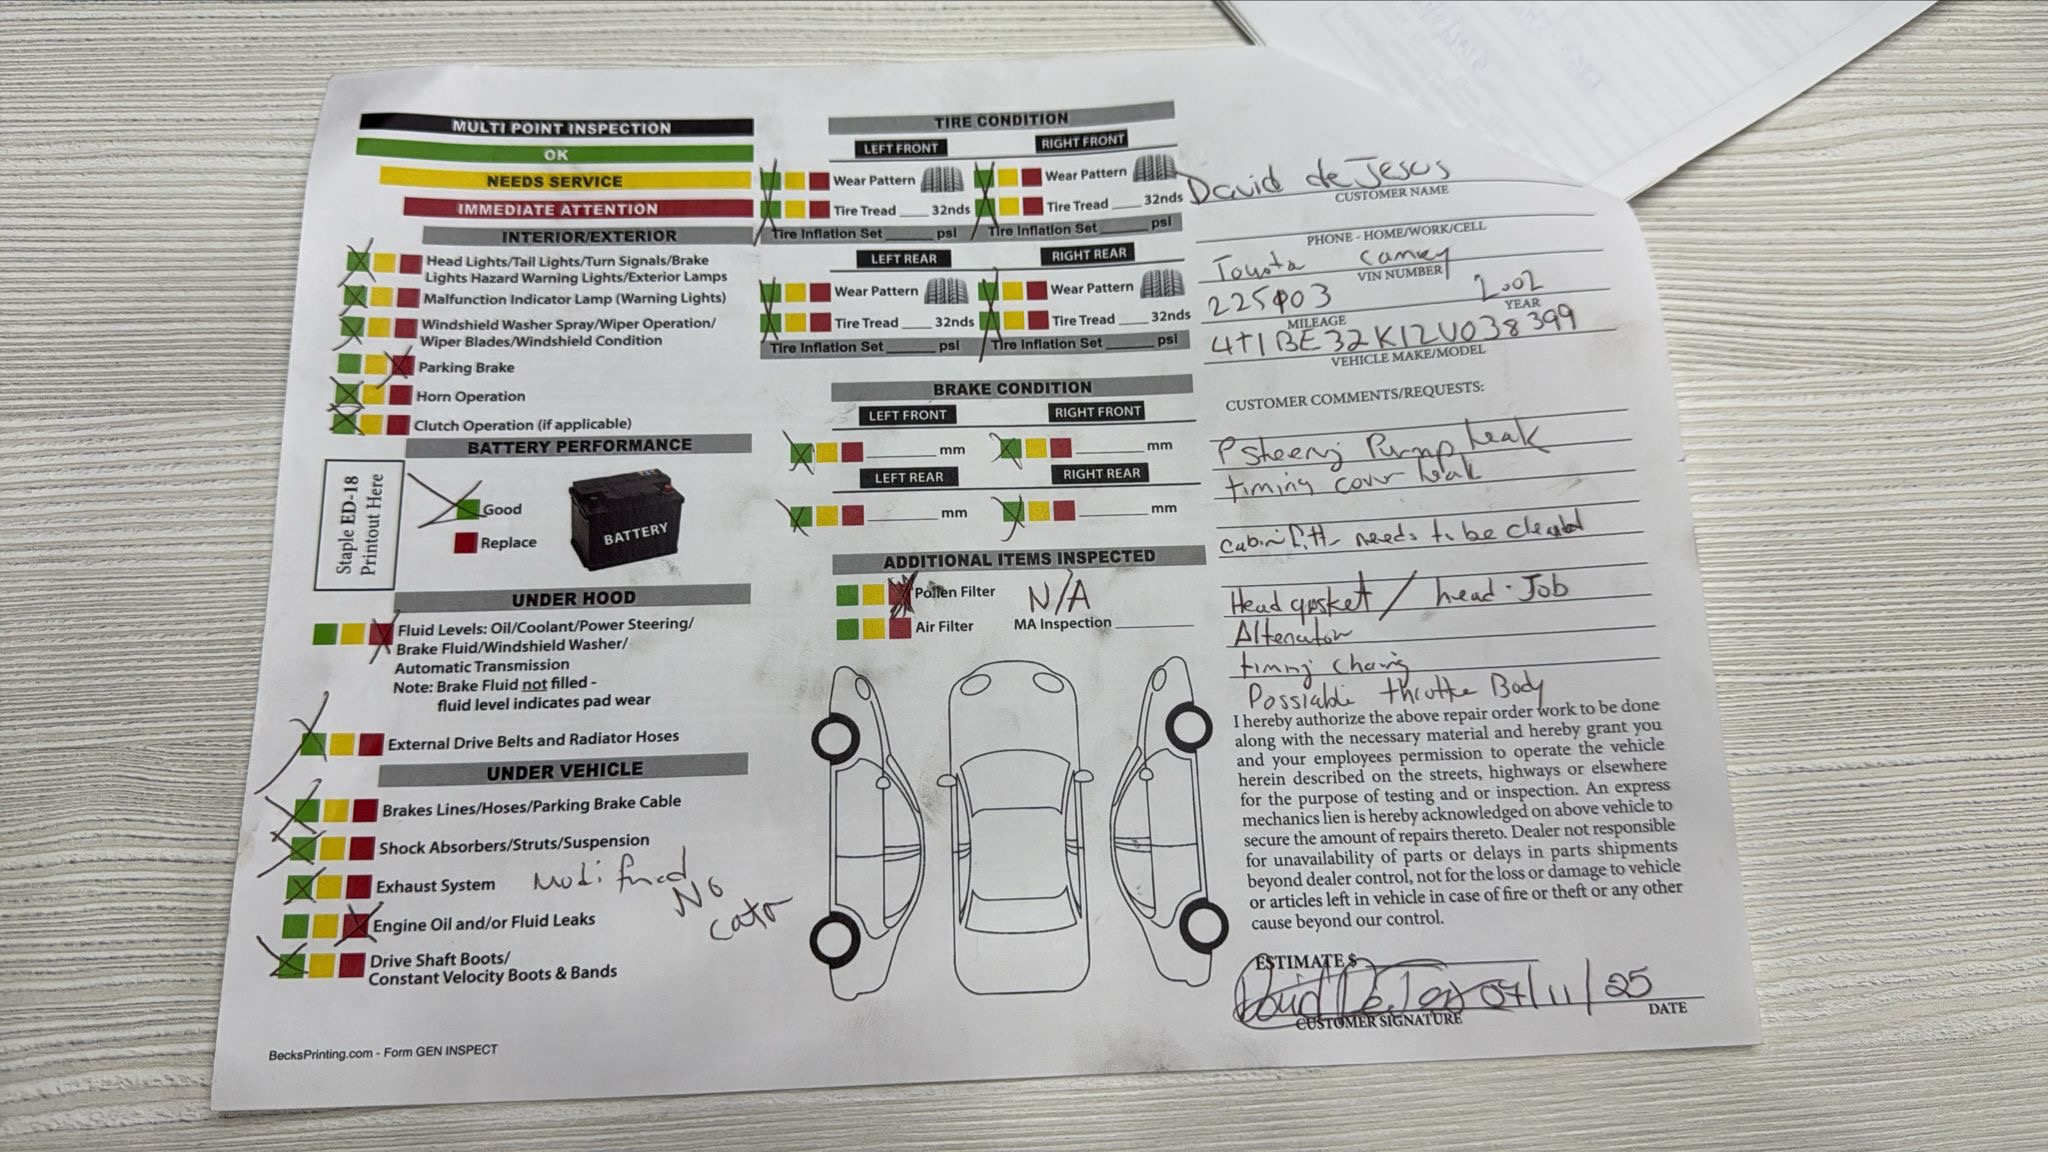 MULTI POINT INSPECTION
OK
NEEDS SERVICE
IMMEDIATE ATTENTION
INTERIOR/EXTERIOR
Head Lights/Tail Lights/Turn Signals/Brake
Lights Hazard Warning Lights/Exterior Lamps
Malfunction Indicator Lamp (Warning Lights)
Windshield Washer Spray/Wiper Operation/
Wiper Blades/Windshield Condition
Parking Brake
Horn Operation
Clutch Operation (if applicable)
BATTERY PERFORMANCE
Staple ED-18
Printout Here
Good
Replace
BATTERY
UNDER HOOD
Fluid Levels: Oil/Coolant/Power Steering/
Brake Fluid/Windshield Washer/
Automatic Transmission
Note: Brake Fluid not filled -
fluid level indicates pad wear
External Drive Belts and Radiator Hoses
UNDER VEHICLE
Brakes Lines/Hoses/Parking Brake Cable
Shock Absorbers/Struts/Suspension
Exhaust System
No
Engine Oil and/or Fluid Leaks
Drive Shaft Boots/
Constant Velocity Boots & Bands
BecksPrinting.com - Form GEN INSPECT
TIRE CONDITION
LEFT FRONT RIGHT FRONT
Wear Pattern Wear Pattern
Tire Tread ____ 32nds Tire Tread ____ 32nds
Tire Inflation Set ______ psi Tire Inflation Set ______ psi
LEFT REAR RIGHT REAR
Wear Pattern Wear Pattern
Tire Tread ____ 32nds Tire Tread ____ 32nds
Tire Inflation Set ______ psi Tire Inflation Set ______ psi
BRAKE CONDITION
LEFT FRONT RIGHT FRONT
________ mm ________ mm
LEFT REAR RIGHT REAR
________ mm ________ mm
ADDITIONAL ITEMS INSPECTED
Pollen Filter N/A
Air Filter MA Inspection ________
David de Jesus
CUSTOMER NAME
PHONE - HOME/WORK/CELL
Toyota Camry
VIN NUMBER
225003 2002
MILEAGE YEAR
4T1BE32K12U038399
VEHICLE MAKE/MODEL
CUSTOMER COMMENTS/REQUESTS:
P steering Pump leak
timing cover leak
needs to be
Head gasket / head-Job
Alternator
timing
Possiable throttle Body
I hereby authorize the above repair order work to be done
along with the necessary material and hereby grant you
and your employees permission to operate the vehicle
herein described on the streets, highways or elsewhere
for the purpose of testing and or inspection. An express
mechanics lien is hereby acknowledged on above vehicle to
secure the amount of repairs thereto. Dealer not responsible
for unavailability of parts or delays in parts shipments
beyond dealer control, not for the loss or damage to vehicle
or articles left in vehicle in case of fire or theft or any other
cause beyond our control.
ESTIMATE $
07/11/25
CUSTOMER SIGNATURE DATE